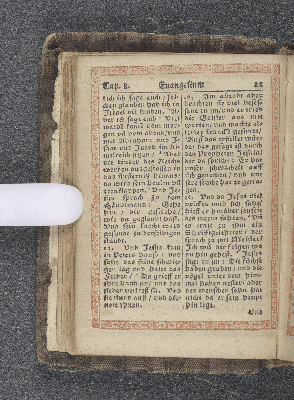 Cap. 8. Euangelium 22
lich ich sage euch / sol-
chen glauben hab ich in
Israel nit funden.
ber ich sage euch / Viel
werden kom̃en vom mor-
gen vñ vom abend / vnd
mit Abraham vnd Je-
Jacob im him-
melreich sitzen /
die kinder des Reichs
werden außgestossen in
das finsternis hinauß /
da wird sein heulen vñ
zeenklappen. Vnd Je-
sus sprach zu dem
Hauptmann / Gehe
hin / dir geschehe /
wie du geglaubt hast.
Vnd sein knecht ward
gesund zu derselbigen
stunde.
Vnd Jesus kam
in Peters hauß / vnd
sahe das seine schwiger
lag vnd hatte das
Fieber / Da greiff er
ihre hand an / vnd das
fieber verließ sie. Vnd
sie stund auff / vnd die-
nete jhnen.
Am abend aber
brachten sie viel beses-
sene zu jm / vnd er treib
die Geister aus mit
worten / vnd machte al-
lerley krancken gesund /
Auff das erfüllet würde
das gesagt ist durch
den Propheten
der da spricht / Er hat
vnser schwacheit auff
sich genommen / vnd vn-
sere seuche hat er getra-
gen.
Vnd da Jesus viel
volcks vmb sich sahe /
hieß er hinüber jenseit
des meers fahren. Vñ
es trat zu jhm ein
Schrifftgelehrter / der
sprach zu jm / Meister /
Ich wil dir folgen wo
du hin gehest. Jesus
sagt zu jm / Die Füchse
haben gruben / vnd die
vögel vnter dem him-
mel haben nester / aber
des menschen sohn hat
nicht da er sein heupt
hin lege.
Vnd